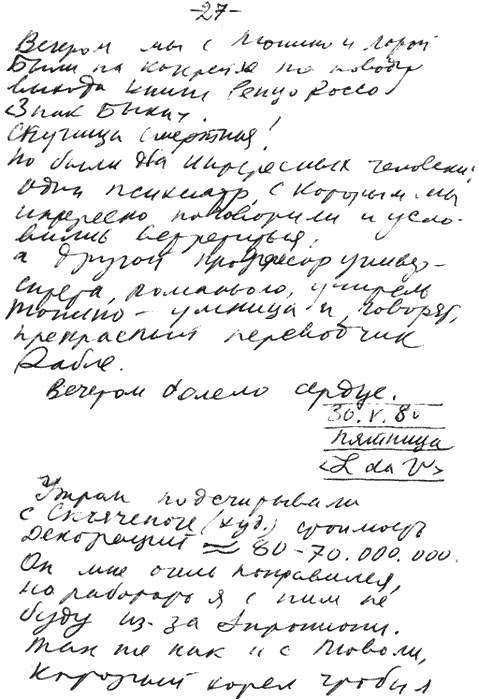 -27-
Вечером мы с Тонино и Лорой
были на коктейле по поводу
выхода книги Ренцо Россо
<Знак Быка>.
Скучища смертная!
Но были два интересных человека:
один психиатр, с которым мы
интересно поговорили и усло-
вились встретиться,
а другой профессор универ-
ситета, романолог, учитель
Тонино - умница и, говорят,
прекрасный переводчик
Рабле.
Вечером болело сердце.
30.V.80
пятница
<L da V>
Утром подсчитывали
с (худ.) стоимость
декораций ≈ 60-70.000.000.
Он мне очень понравился,
но работать я с ним не
буду из-за
Так же как и с
который хотел чтобы я